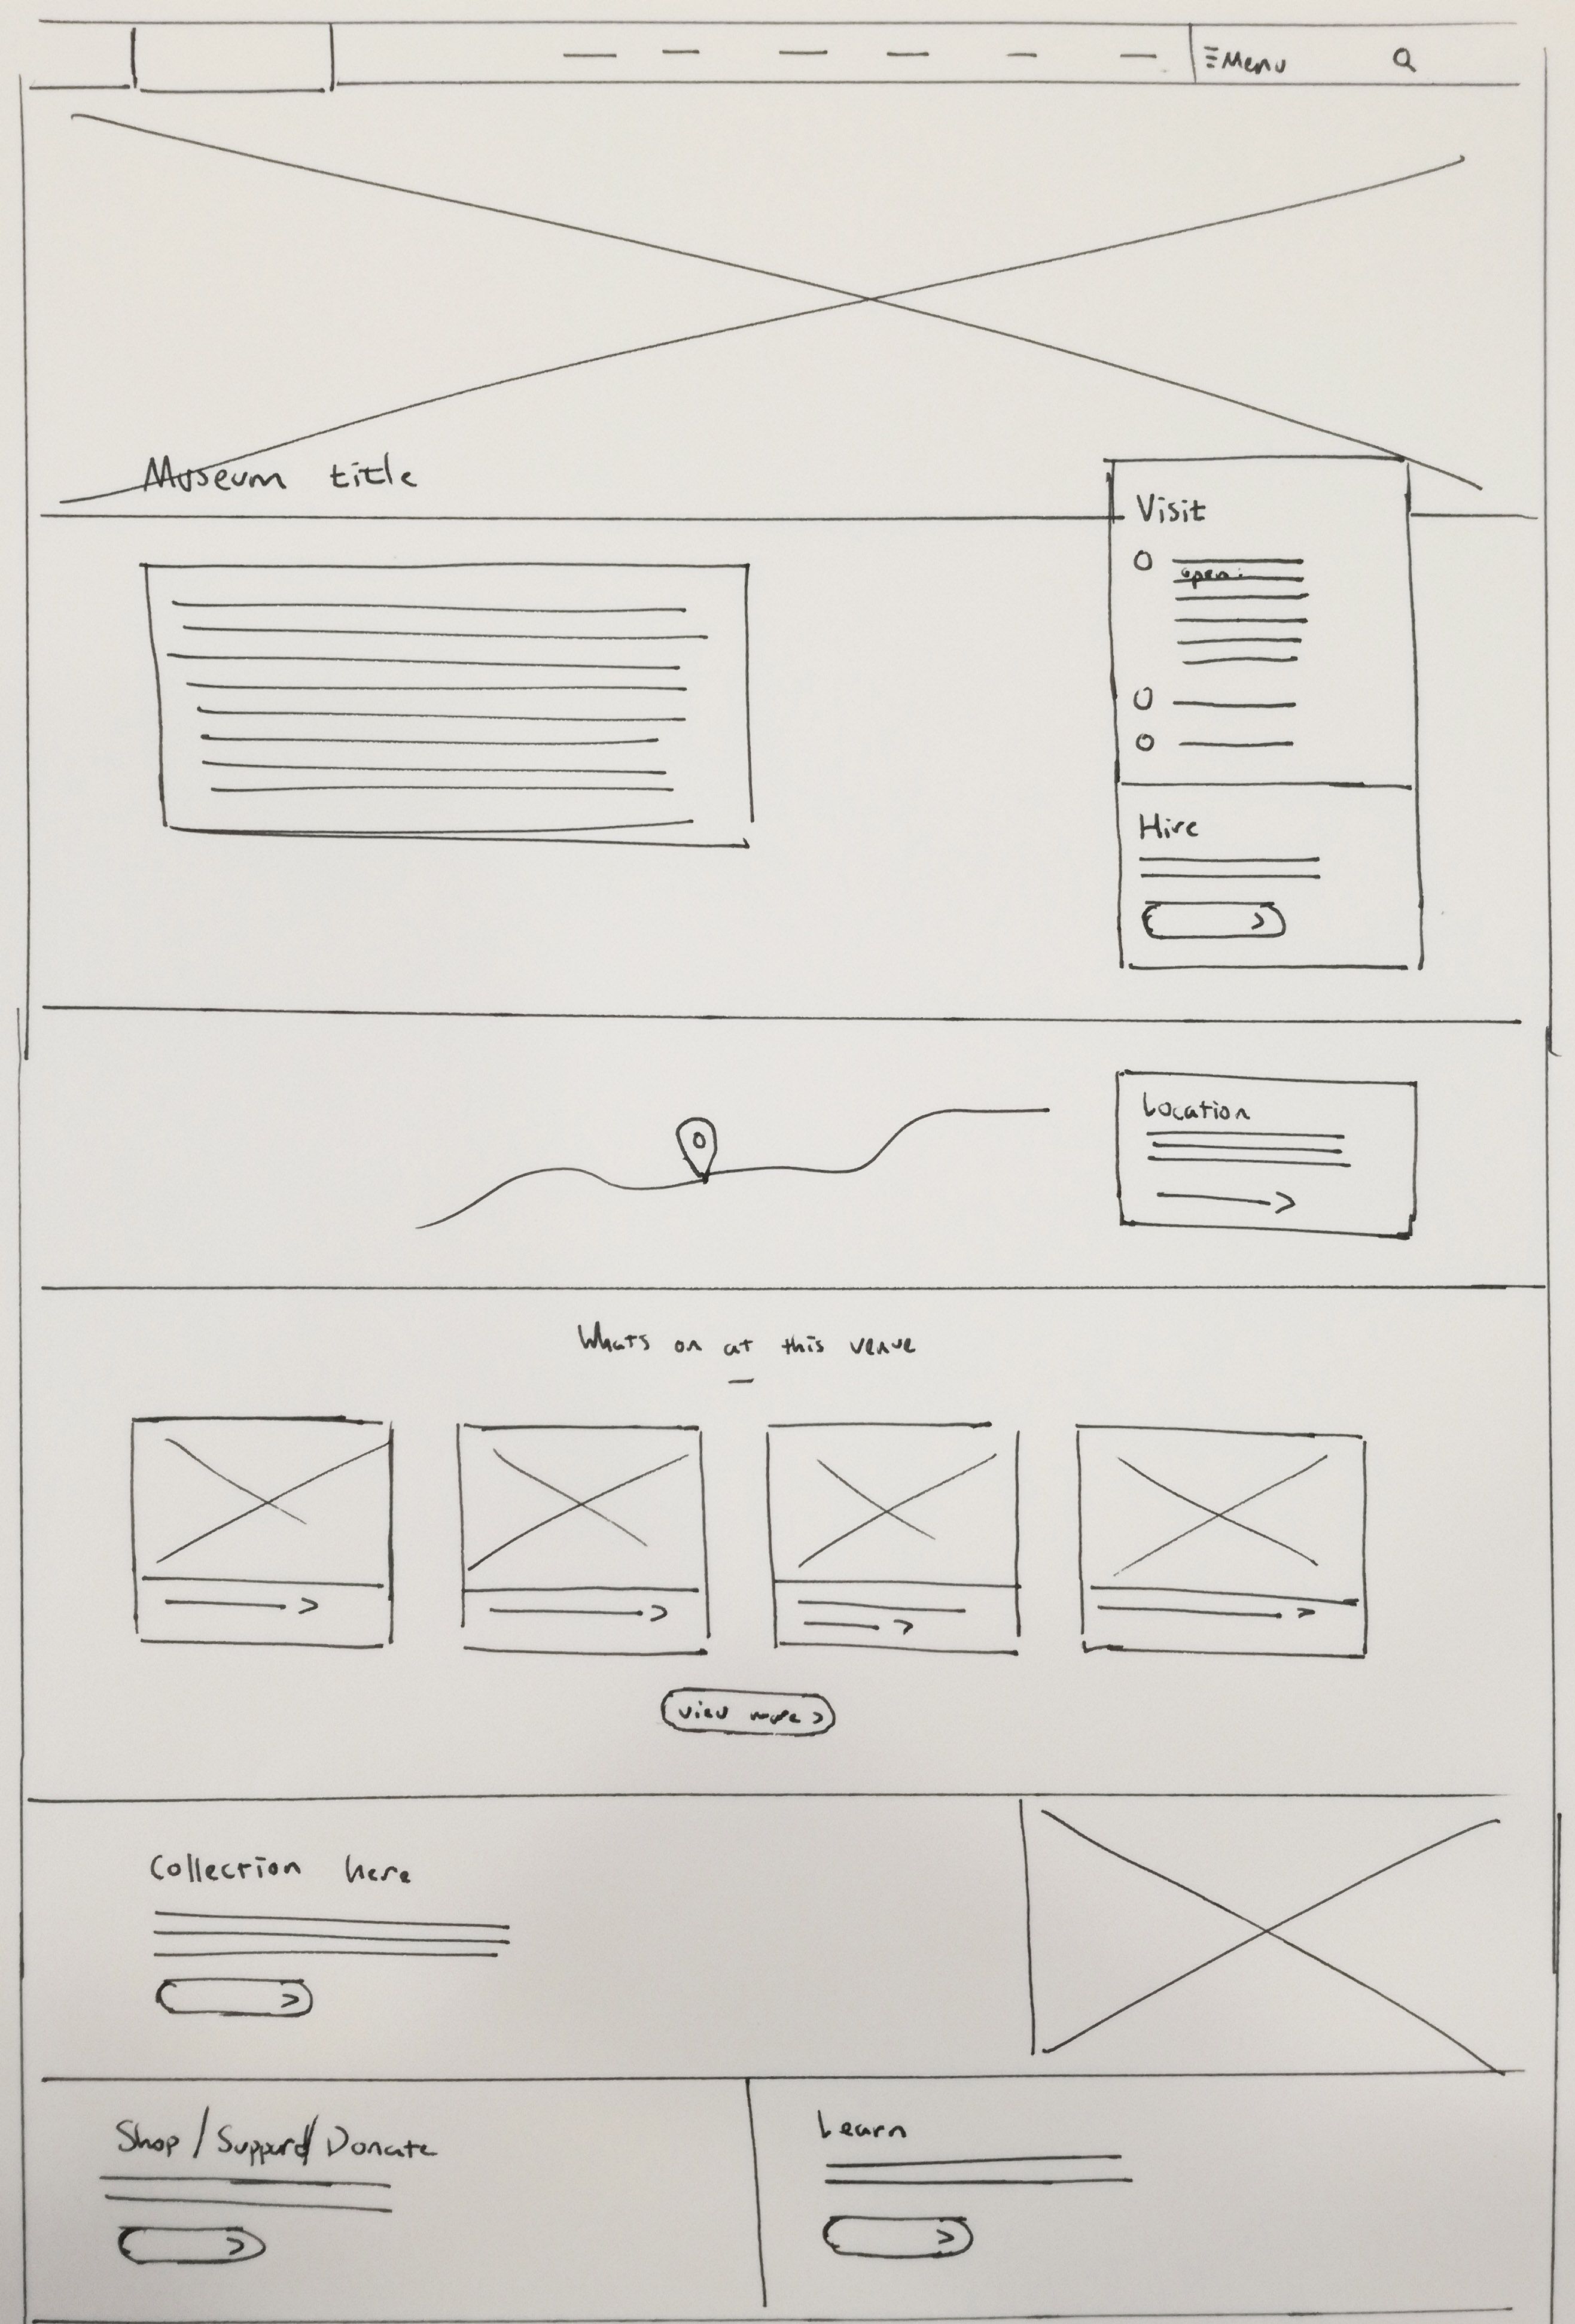 Menu
Museum title
Visit
open:
Hire
Location
Whats on at this venue
view more >
Collection here
Shop / Support / Donate
Learn